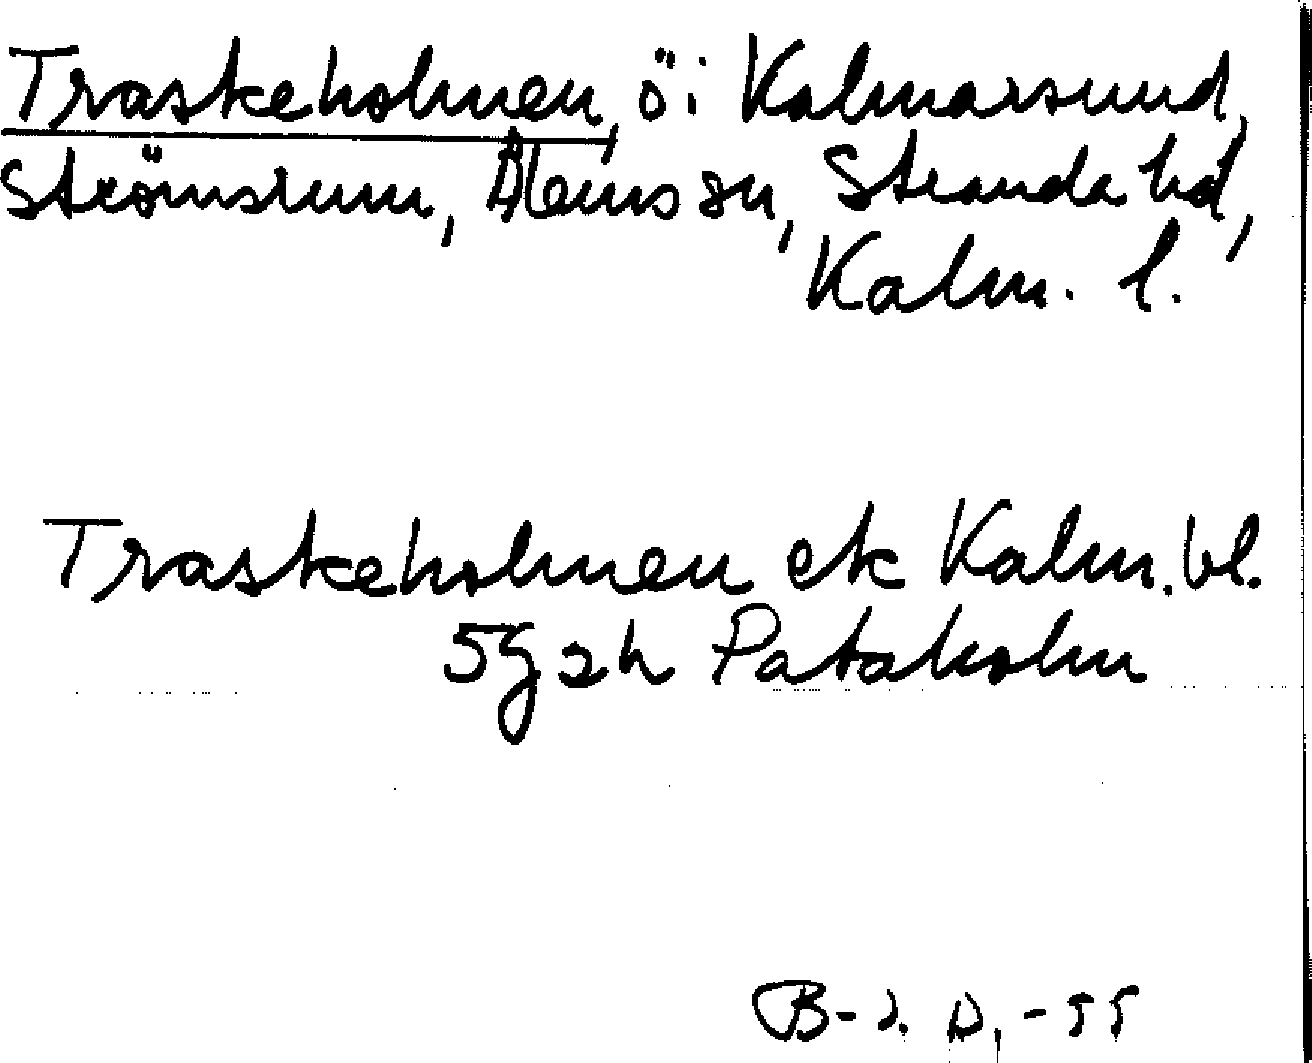 Traskeholmen, ö i Kalmarsund,
Strömsrum, Ålems sn, Stranda hd,
Kalm. l.
Traskeholmen ek Kalm. bl.
5g 2h Pataholm
B-J. D, -55